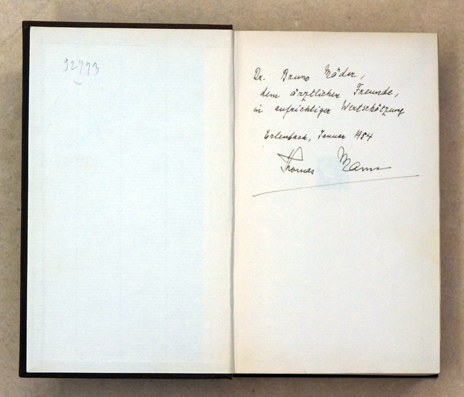 32793
Dr. Bruno Mäder,
dem ärztlichen Freunde,
in aufrichtiger Wertschätzung
Erlenbach, Januar 1954
Thomas Mann